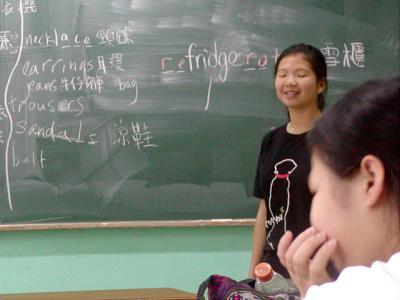 機
necklace 頸鍊
earrings 耳環
jeans 牛仔褲 bag
trousers
sandals 涼鞋
belt
refrigero 雪櫃